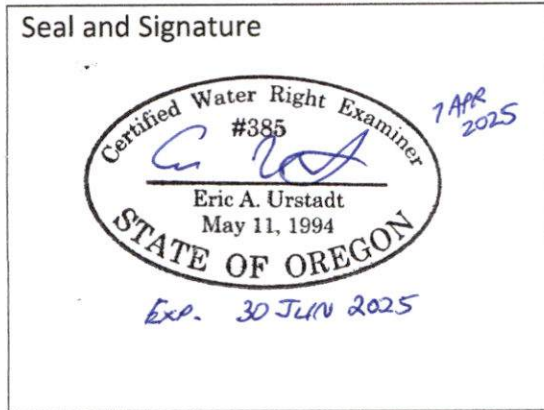 Seal and Signature
Certified Water Right Examiner
#385
7 APR
2025
Eric A. Urstadt
May 11, 1994
STATE OF OREGON
Exp. 30 JUN 2025